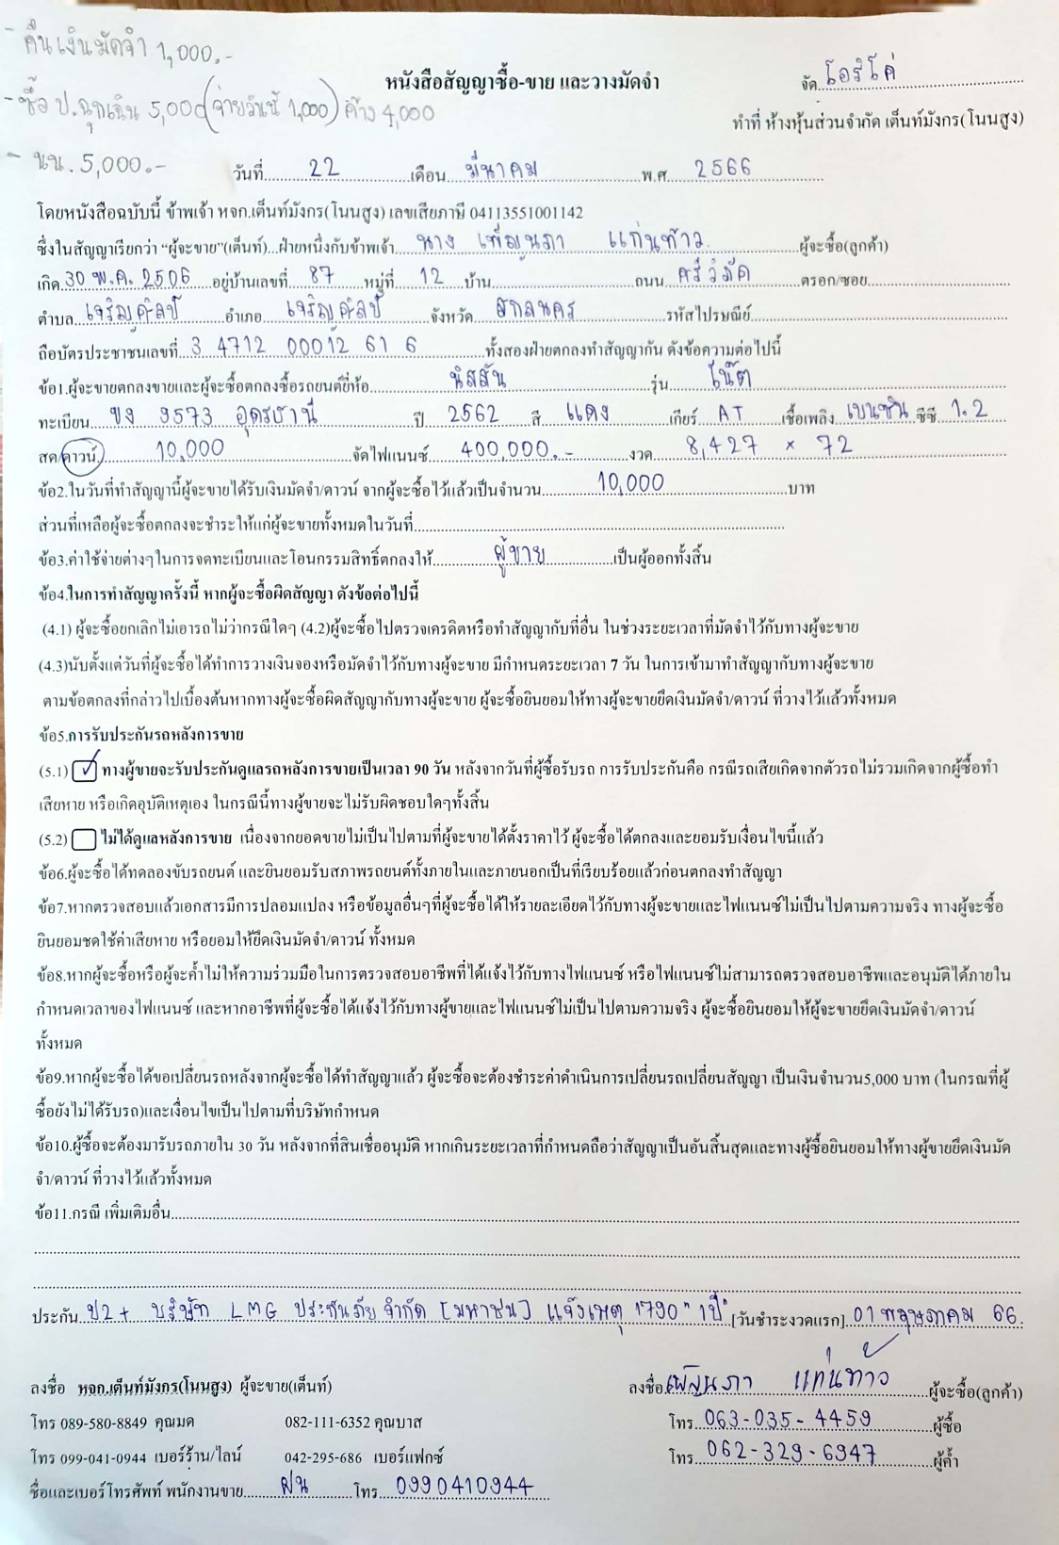 - คืนเงินมัดจำ 1,000.-
- ซื้อ ป.ฉุกเฉิน 5,000 (จ่ายวันนี้ 1,000) ค้าง 4,000
- นน. 5,000.-
หนังสือสัญญาซื้อ-ขาย และวางมัดจำ
จัด โอริโค่
ทำที่ ห้างหุ้นส่วนจำกัด เต็นท์มังกร(โนนสูง)
วันที่ 22 เดือน มีนาคม พ.ศ. 2566
โดยหนังสือฉบับนี้ ข้าพเจ้า หจก.เต็นท์มังกร(โนนสูง) เลขเสียภาษี 04113551001142
ซึ่งในสัญญาเรียกว่า “ผู้จะขาย”(เต็นท์)...ฝ่ายหนึ่งกับข้าพเจ้า นาง เพ็ญนภา แก่นท้าว ผู้จะซื้อ(ลูกค้า)
เกิด 30 พ.ค. 2506 อยู่บ้านเลขที่ 87 หมู่ที่ 12 บ้าน ถนน ศรีวิภัค ตรอก/ซอย
ตำบล เจริญศิลป์ อำเภอ เจริญศิลป์ จังหวัด สกลนคร รหัสไปรษณีย์
ถือบัตรประชาชนเลขที่ 3 4712 00012 61 6 ทั้งสองฝ่ายตกลงทำสัญญากัน ดังข้อความต่อไปนี้
ข้อ1.ผู้จะขายตกลงขายและผู้จะซื้อตกลงซื้อรถยนต์ยี่ห้อ นิสสัน รุ่น โน๊ต
ทะเบียน ขง 9573 อุดรธานี ปี 2562 สี แดง เกียร์ AT เชื้อเพลิง เบนซิน ซีซี 1.2
สด/ดาวน์ 10,000 จัดไฟแนนซ์ 400,000.- งวด 8,427 × 72
ข้อ2.ในวันที่ทำสัญญานี้ผู้จะขายได้รับเงินมัดจำ/ดาวน์ จากผู้จะซื้อไว้แล้วเป็นจำนวน 10,000 บาท
ส่วนที่เหลือผู้จะซื้อตกลงจะชำระให้แก่ผู้จะขายทั้งหมดในวันที่
ข้อ3.ค่าใช้จ่ายต่างๆในการจดทะเบียนและโอนกรรมสิทธิ์ตกลงให้ ผู้ขาย เป็นผู้ออกทั้งสิ้น
ข้อ4.ในการทำสัญญาครั้งนี้ หากผู้จะซื้อผิดสัญญา ดังข้อต่อไปนี้
(4.1) ผู้จะซื้อยกเลิกไม่เอารถไม่ว่ากรณีใดๆ (4.2)ผู้จะซื้อไปตรวจเครดิตหรือทำสัญญากับที่อื่น ในช่วงระยะเวลาที่มัดจำไว้กับทางผู้จะขาย
(4.3)นับตั้งแต่วันที่ผู้จะซื้อได้ทำการวางเงินจองหรือมัดจำไว้กับทางผู้จะขาย มีกำหนดระยะเวลา 7 วัน ในการเข้ามาทำสัญญากับทางผู้จะขาย
ตามข้อตกลงที่กล่าวไปเบื้องต้นหากทางผู้จะซื้อผิดสัญญากับทางผู้จะขาย ผู้จะซื้อยินยอมให้ทางผู้จะขายยึดเงินมัดจำ/ดาวน์ ที่วางไว้แล้วทั้งหมด
ข้อ5.การรับประกันรถหลังการขาย
(5.1) ✓ ทางผู้ขายจะรับประกันดูแลรถหลังการขายเป็นเวลา 90 วัน หลังจากวันที่ผู้ซื้อรับรถ การรับประกันคือ กรณีรถเสียเกิดจากตัวรถไม่รวมเกิดจากผู้ซื้อทำ
เสียหาย หรือเกิดอุบัติเหตุเอง ในกรณีนี้ทางผู้ขายจะไม่รับผิดชอบใดๆทั้งสิ้น
(5.2) ไม่ได้ดูแลหลังการขาย เนื่องจากยอดขายไม่เป็นไปตามที่ผู้จะขายได้ตั้งราคาไว้ ผู้จะซื้อได้ตกลงและยอมรับเงื่อนไขนี้แล้ว
ข้อ6.ผู้จะซื้อได้ทดลองขับรถยนต์ และยินยอมรับสภาพรถยนต์ทั้งภายในและภายนอกเป็นที่เรียบร้อยแล้วก่อนตกลงทำสัญญา
ข้อ7.หากตรวจสอบแล้วเอกสารมีการปลอมแปลง หรือข้อมูลอื่นๆที่ผู้จะซื้อได้ให้รายละเอียดไว้กับทางผู้จะขายและไฟแนนซ์ไม่เป็นไปตามความจริง ทางผู้จะซื้อ
ยินยอมชดใช้ค่าเสียหาย หรือยอมให้ยึดเงินมัดจำ/ดาวน์ ทั้งหมด
ข้อ8.หากผู้จะซื้อหรือผู้จะค้ำไม่ให้ความร่วมมือในการตรวจสอบอาชีพที่ได้แจ้งไว้กับทางไฟแนนซ์ หรือไฟแนนซ์ไม่สามารถตรวจสอบอาชีพและอนุมัติได้ภายใน
กำหนดเวลาของไฟแนนซ์ และหากอาชีพที่ผู้จะซื้อได้แจ้งไว้กับทางผู้ขายและไฟแนนซ์ไม่เป็นไปตามความจริง ผู้จะซื้อยินยอมให้ผู้จะขายยึดเงินมัดจำ/ดาวน์
ทั้งหมด
ข้อ9.หากผู้จะซื้อได้ขอเปลี่ยนรถหลังจากผู้จะซื้อได้ทำสัญญาแล้ว ผู้จะซื้อจะต้องชำระค่าดำเนินการเปลี่ยนรถเปลี่ยนสัญญา เป็นเงินจำนวน5,000 บาท (ในกรณที่ผู้
ซื้อยังไม่ได้รับรถ)และเงื่อนไขเป็นไปตามที่บริษัทกำหนด
ข้อ10.ผู้ซื้อจะต้องมารับรถภายใน 30 วัน หลังจากที่สินเชื่ออนุมัติ หากเกินระยะเวลาที่กำหนดถือว่าสัญญาเป็นอันสิ้นสุดและทางผู้ซื้อยินยอมให้ทางผู้ขายยึดเงินมัด
จำ/ดาวน์ ที่วางไว้แล้วทั้งหมด
ข้อ11.กรณี เพิ่มเติมอื่น
ประกัน ป2+ บริษัท LMG ประกันภัย จำกัด [มหาชน] แจ้งเหตุ "1790" 1ปี [วันชำระงวดแรก] 01 พฤษภาคม 66.
ลงชื่อ หจก.เต็นท์มังกร(โนนสูง) ผู้จะขาย(เต็นท์) ลงชื่อ เพ็ญนภา แก่นท้าว ผู้จะซื้อ(ลูกค้า)
โทร 089-580-8849 คุณมด 082-111-6352 คุณบาส โทร 063-035-4459 ผู้ซื้อ
โทร 099-041-0944 เบอร์ร้าน/ไลน์ 042-295-686 เบอร์แฟกซ์ โทร 062-329-6947 ผู้ค้ำ
ชื่อและเบอร์โทรศัพท์ พนักงานขาย ฝน โทร 0990410944